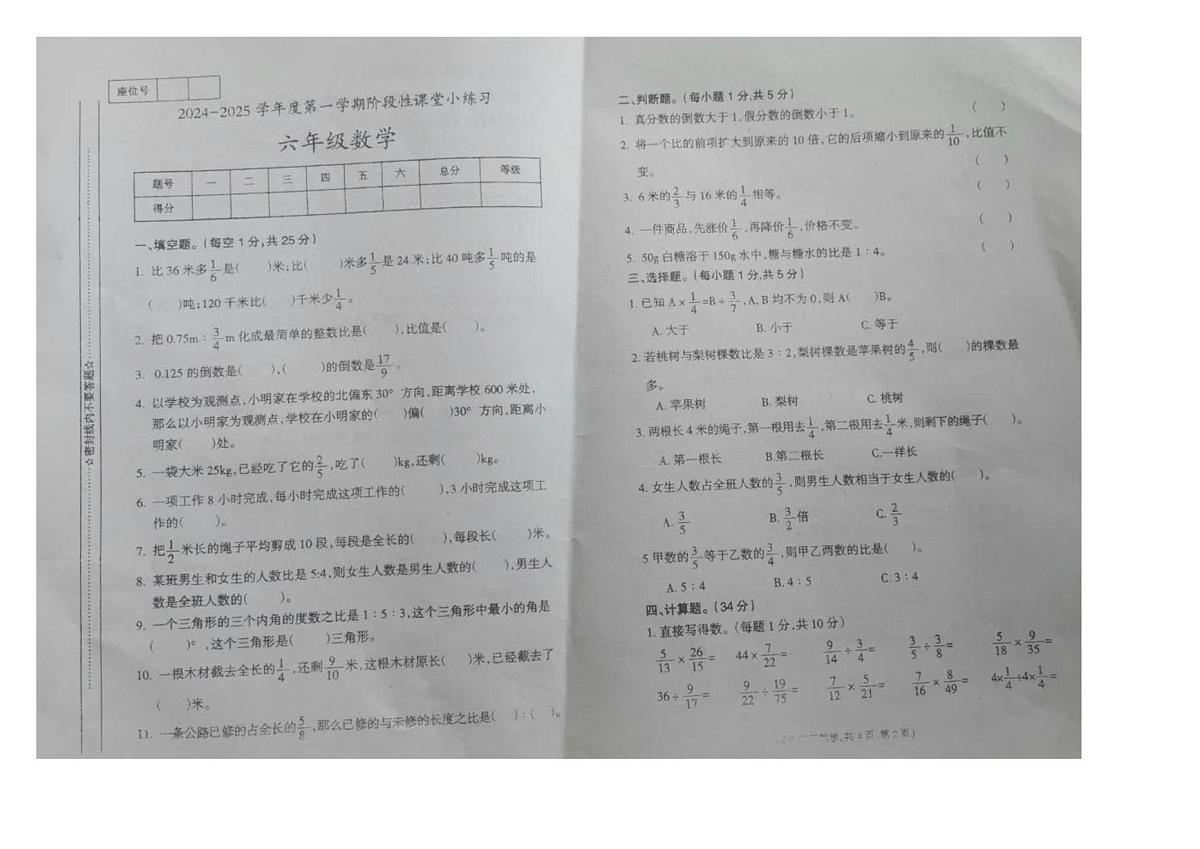 座位号
2024-2025 学年度第一学期阶段性课堂小练习
六年级数学
题号 一 二 三 四 五 六 总分 等级
得分
☆密封线内不要答题☆
一、填空题。(每空 1 分,共 25 分)
1. 比 36 米多1/6是( )米;比( )米多1/5是 24 米;比 40 吨多1/5吨的是
( )吨;120 千米比( )千米少1/4。
2. 把 0.75m∶3/4m 化成最简单的整数比是( ),比值是( )。
3. 0.125 的倒数是( ),( )的倒数是17/9。
4. 以学校为观测点,小明家在学校的北偏东 30° 方向,距离学校 600 米处,
那么以小明家为观测点,学校在小明家的( )偏( )30° 方向,距离小
明家( )处。
5. 一袋大米 25kg,已经吃了它的2/5,吃了( )kg,还剩( )kg。
6. 一项工作 8 小时完成,每小时完成这项工作的( ),3 小时完成这项工
作的( )。
7. 把1/2米长的绳子平均剪成 10 段,每段是全长的( ),每段长( )米。
8. 某班男生和女生的人数比是 5:4,则女生人数是男生人数的( ),男生人
数是全班人数的( )。
9. 一个三角形的三个内角的度数之比是 1∶5∶3,这个三角形中最小的角是
( )°,这个三角形是( )三角形。
10. 一根木材截去全长的1/4,还剩9/10米,这根木材原长( )米,已经截去了
( )米。
11. 一条公路已修的占全长的5/8,那么已修的与未修的长度之比是( )∶( )。
二、判断题。(每小题 1 分,共 5 分)
1. 真分数的倒数大于 1,假分数的倒数小于 1。 ( )
2. 将一个比的前项扩大到原来的 10 倍,它的后项缩小到原来的1/10,比值不
变。 ( )
3. 6 米的2/3与 16 米的1/4相等。 ( )
4. 一件商品,先涨价1/6,再降价1/6,价格不变。 ( )
5. 50g 白糖溶于 150g 水中,糖与糖水的比是 1∶4。 ( )
三、选择题。(每小题 1 分,共 5 分)
1. 已知 A×1/4=B÷3/7,A、B 均不为 0,则 A( )B。
A. 大于 B. 小于 C. 等于
2. 若桃树与梨树棵数比是 3∶2,梨树棵数是苹果树的4/5,则( )的棵数最
多。
A. 苹果树 B. 梨树 C. 桃树
3. 两根长 4 米的绳子,第一根用去1/4,第二根用去1/4米,则剩下的绳子( )。
A. 第一根长 B.第二根长 C.一样长
4. 女生人数占全班人数的3/5,则男生人数相当于女生人数的( )。
A. 3/5 B. 3/2倍 C. 2/3
5. 甲数的3/5等于乙数的3/4,则甲乙两数的比是( )。
A. 5∶4 B. 4∶5 C. 3∶4
四、计算题。(34 分)
1. 直接写得数。(每题 1 分,共 10 分)
5/13×26/15= 44×7/22= 9/14÷3/4= 3/5÷3/8= 5/18×9/35=
36÷9/17= 9/22÷19/75= 7/12×5/21= 7/16×8/49= 4×1/4÷4×1/4=
数学,共 4 页,第 2 页)